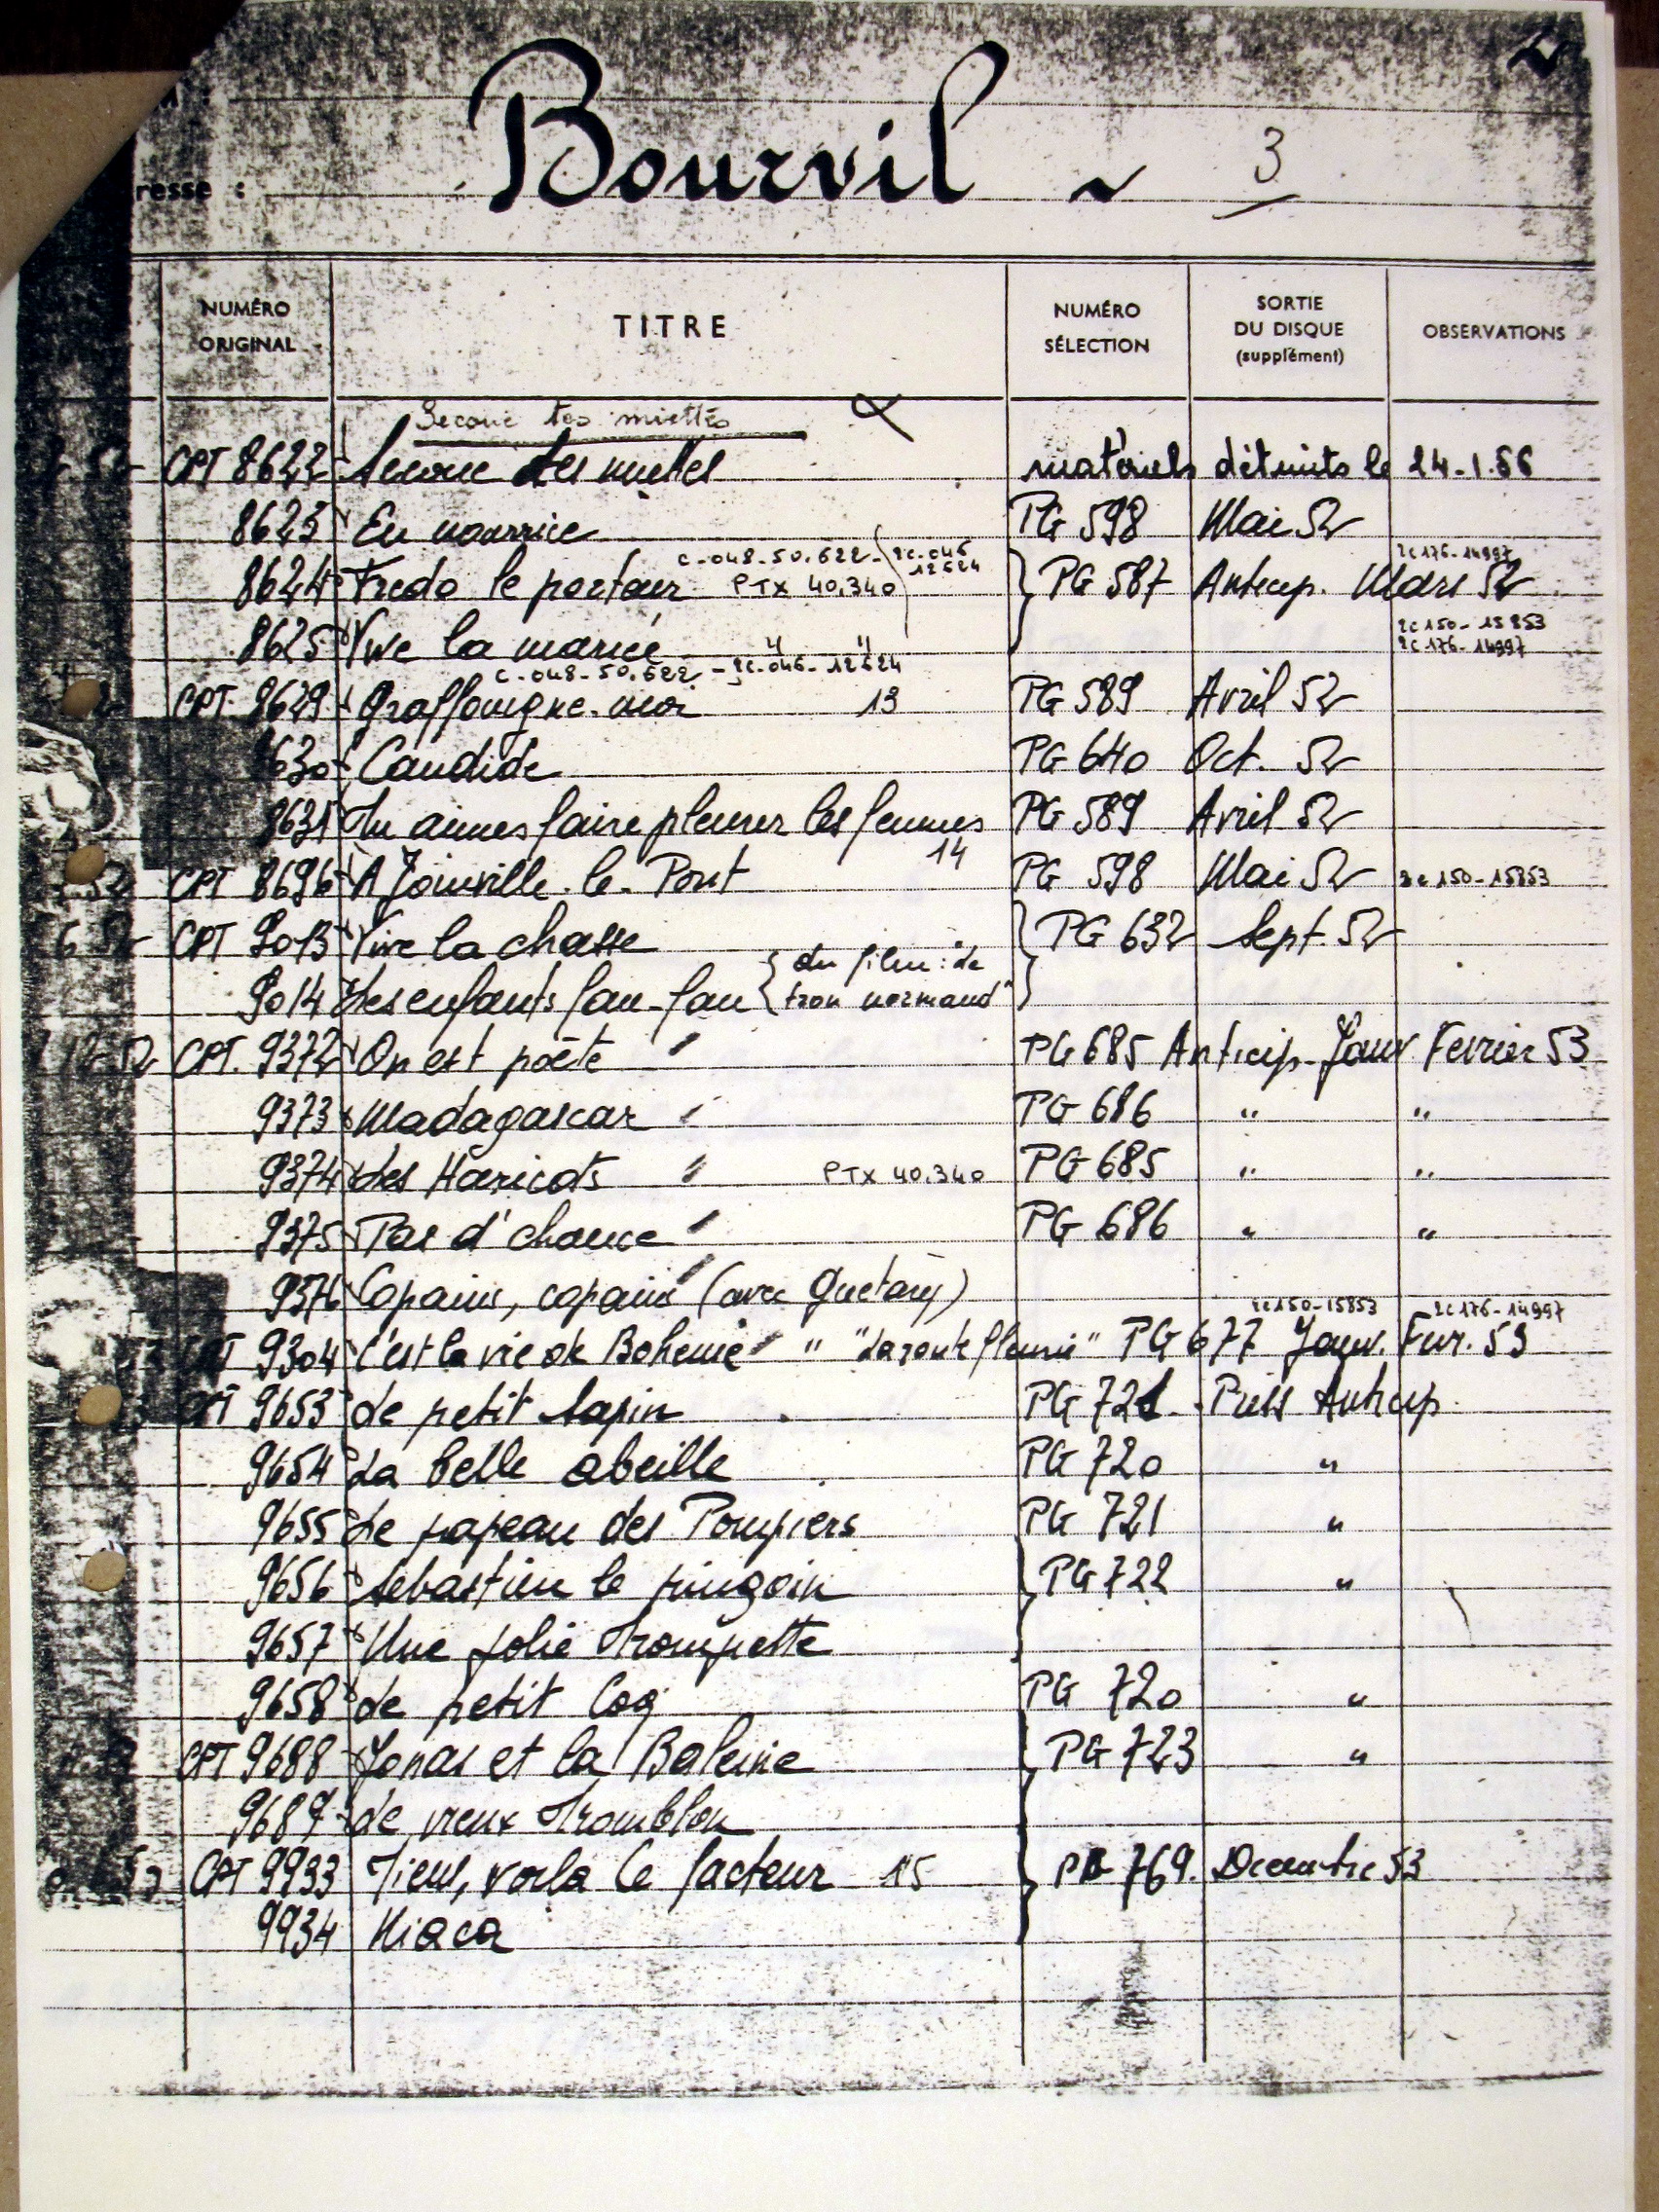 2
resse :
Bourvil ~ 3
NUMÉRO ORIGINAL TITRE NUMÉRO SÉLECTION SORTIE DU DISQUE (supplément) OBSERVATIONS
Secoue tes miettes
CPT 8622 Secoue tes miettes matériels détruits le 24-1.66
8623 En nourrice PG 598 Mai 52
C-048-50.622- 2C-046 12624 2C176-14997
8624 Fredo le porteur PTX 40.340 PG 587 Anticip. Mars 52
8625 Vive la mariée " " 2C150-15853
C-048-50.622 - 2C-046-12624 2C176-14997
CPT. 8629 Graffouigne-moi 13 PG 589 Avril 52
8630 Candide PG 640 Oct. 52
8631 Tu aimes faire pleurer les femmes PG 589 Avril 52
14
CPT 8696 A Joinville-le-Pont PG 598 Mai 52 2C150-15853
6 52 CPT 9013 Vive la chasse PG 632 Sept. 52
9014 Les enfants fan-fan { du film : Le tron normand"
12-52 CPT. 9372 On est poète " PG 685 Anticip. Janv Fevrier 53
9373 Madagascar " PG 686 " "
9374 Les Haricots " PTX 40.340 PG 685 " "
9375 Pas d'chance " PG 686 " "
9376 Copains, copains (avec Guetary)
2C150-15853 2C176-14997
9304 C'est la vie de Boheme " " "La route fleurie" PG 677 Janv. Fev. 53
9653 Le petit Sapin PG 721 Press Anticip.
9654 La belle abeille PG 720 "
9655 Le papeau des Pompiers PG 721 "
9656 Sebastien le pingoin PG 722 "
9657 Une jolie Trompette
9658 Le petit Coq PG 720 "
CPT 9688 Jonas et la Baleine PG 723 "
9689 Le vieux Tromblon
CPT 9933 Tiens, voila le facteur 15 PG 769. Decembre 53
9934 Miaca